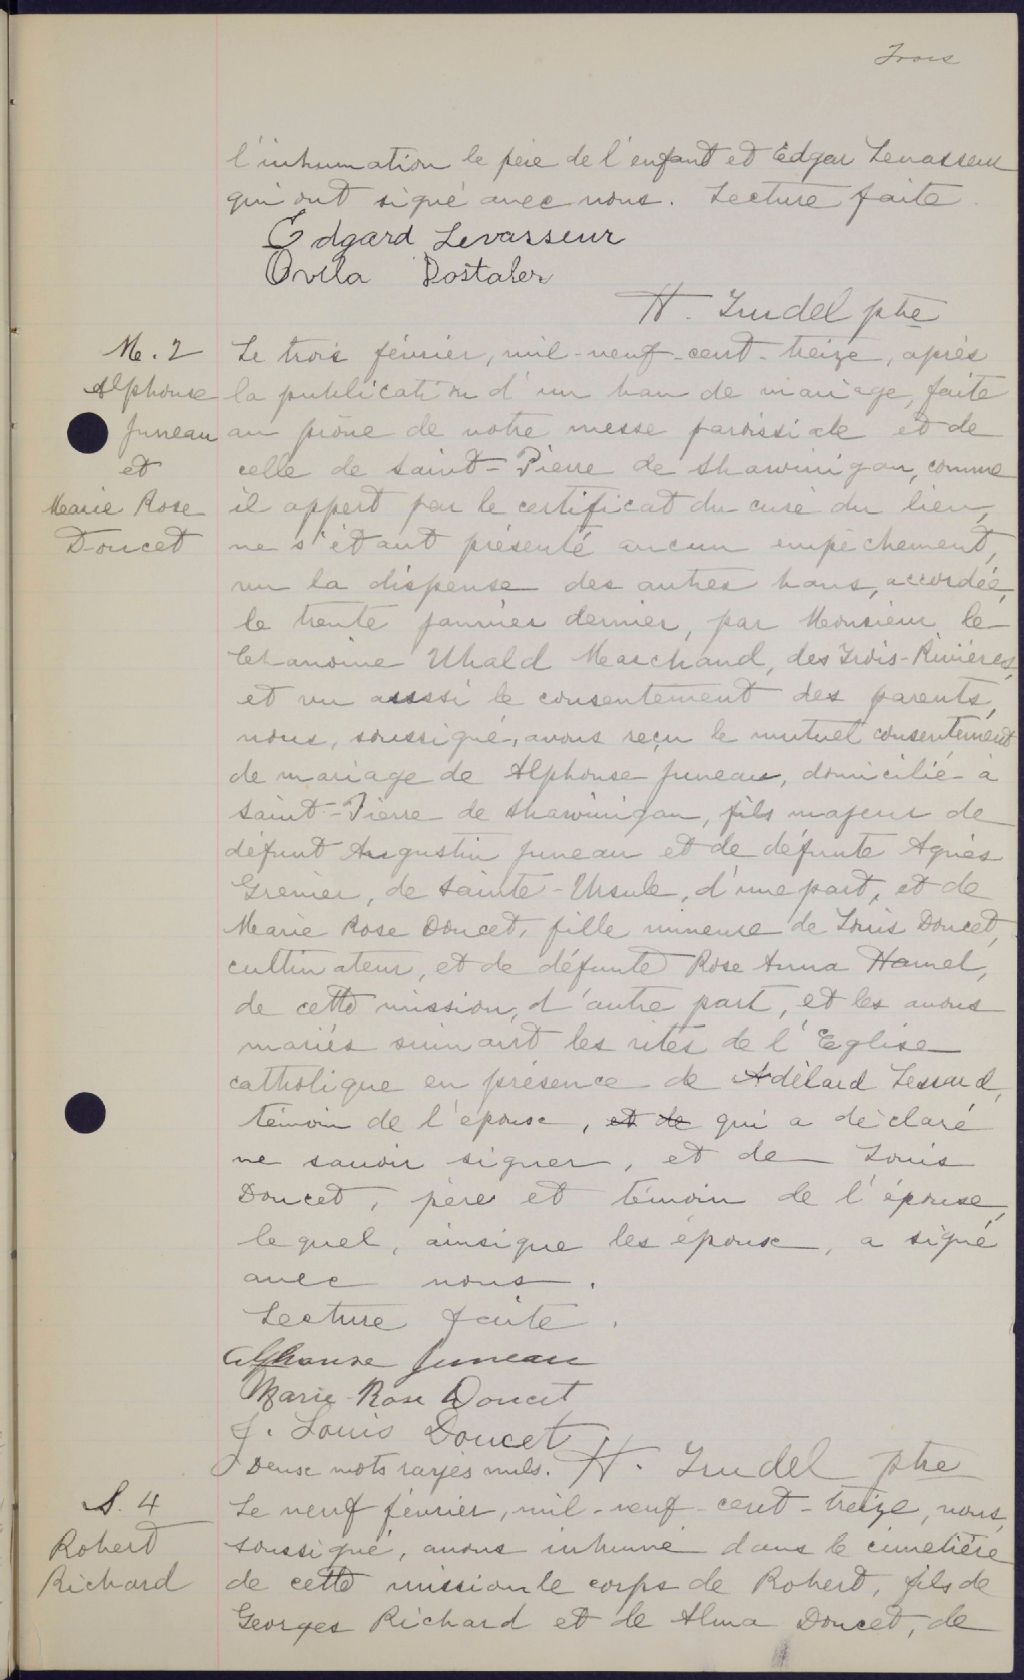 Trois
l'inhumation le père de l'enfant et Edgar Levasseur
qui ont signé avec nous. Lecture faite.
Edgard Levasseur
Ovila Dostaler
H. Trudel ptre
M. 2
Alphonse
Juneau
et
Marie Rose
Doucet
Le trois février, mil-neuf-cent-treize, après
la publication d'un ban de mariage, faite
au prône de notre messe paroissiale et de
celle de Saint-Pierre de Shawinigan, comme
il appert par le certificat du curé du lieu,
ne s'étant présenté aucun empêchement,
vu la dispense des autres bans, accordée,
le trente janvier dernier, par Monsieur le
Chanoine Ubald Marchand, des Trois-Rivières,
et vu aussi le consentement des parents,
nous, soussigné, avons reçu le mutuel consentement
de mariage de Alphonse Juneau, domicilié à
Saint-Pierre de Shawinigan, fils majeur de
défunt Augustin Juneau et de défunte Agnès
Grenier, de Sainte-Ursule, d'une part, et de
Marie Rose Doucet, fille mineure de Louis Doucet,
cultivateur, et de défunte Rose Anna Hamel,
de cette mission, d'autre part, et les avons
mariés suivant les rites de l'Eglise
catholique en présence de Adélard Lessard,
témoin de l'époux, et de qui a déclaré
ne savoir signer, et de Louis
Doucet, père et témoin de l'épouse,
lequel, ainsi que les époux, a signé
avec nous.
Lecture faite.
Alphonse Juneau
Marie-Rose Doucet
J. Louis Doucet
Deux mots rayés nuls. H. Trudel ptre
S. 4
Robert
Richard
Le neuf février, mil-neuf-cent-treize, nous,
soussigné, avons inhumé dans le cimetière
de cette mission le corps de Robert, fils de
Georges Richard et de Alma Doucet, de